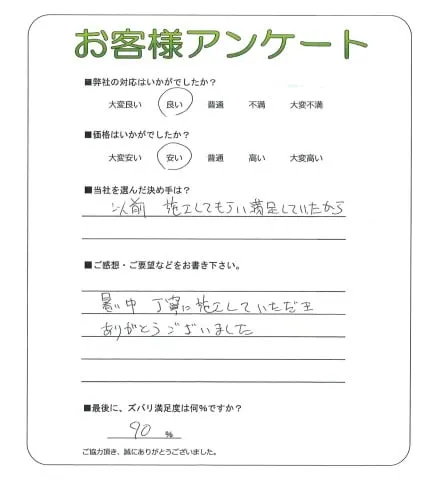 お客様アンケート
■弊社の対応はいかがでしたか？
大変良い 良い 普通 不満 大変不満
■価格はいかがでしたか？
大変安い 安い 普通 高い 大変高い
■当社を選んだ決め手は？
以前 施工してもらい満足していたから
■ご感想・ご要望などをお書き下さい。
暑い中 丁寧に施工していただき
ありがとうございました
■最後に、ズバリ満足度は何％ですか？
90 %
ご協力頂き、誠にありがとうございました。